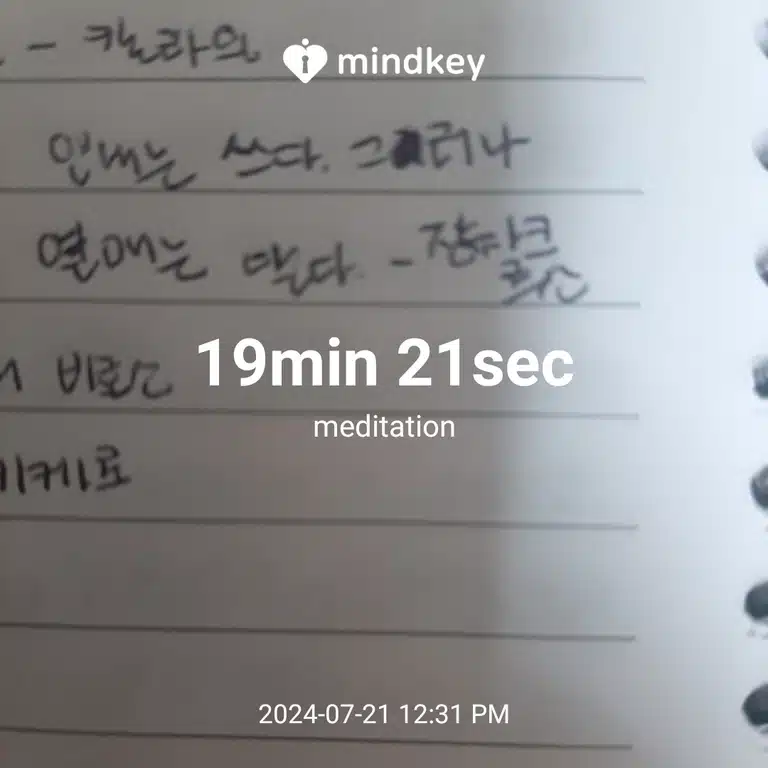 mindkey
인내는 쓰다. 그러나
열매는 달다. - 장자크
루소
비로소
19min 21sec
meditation
키케로
2024-07-21 12:31 PM